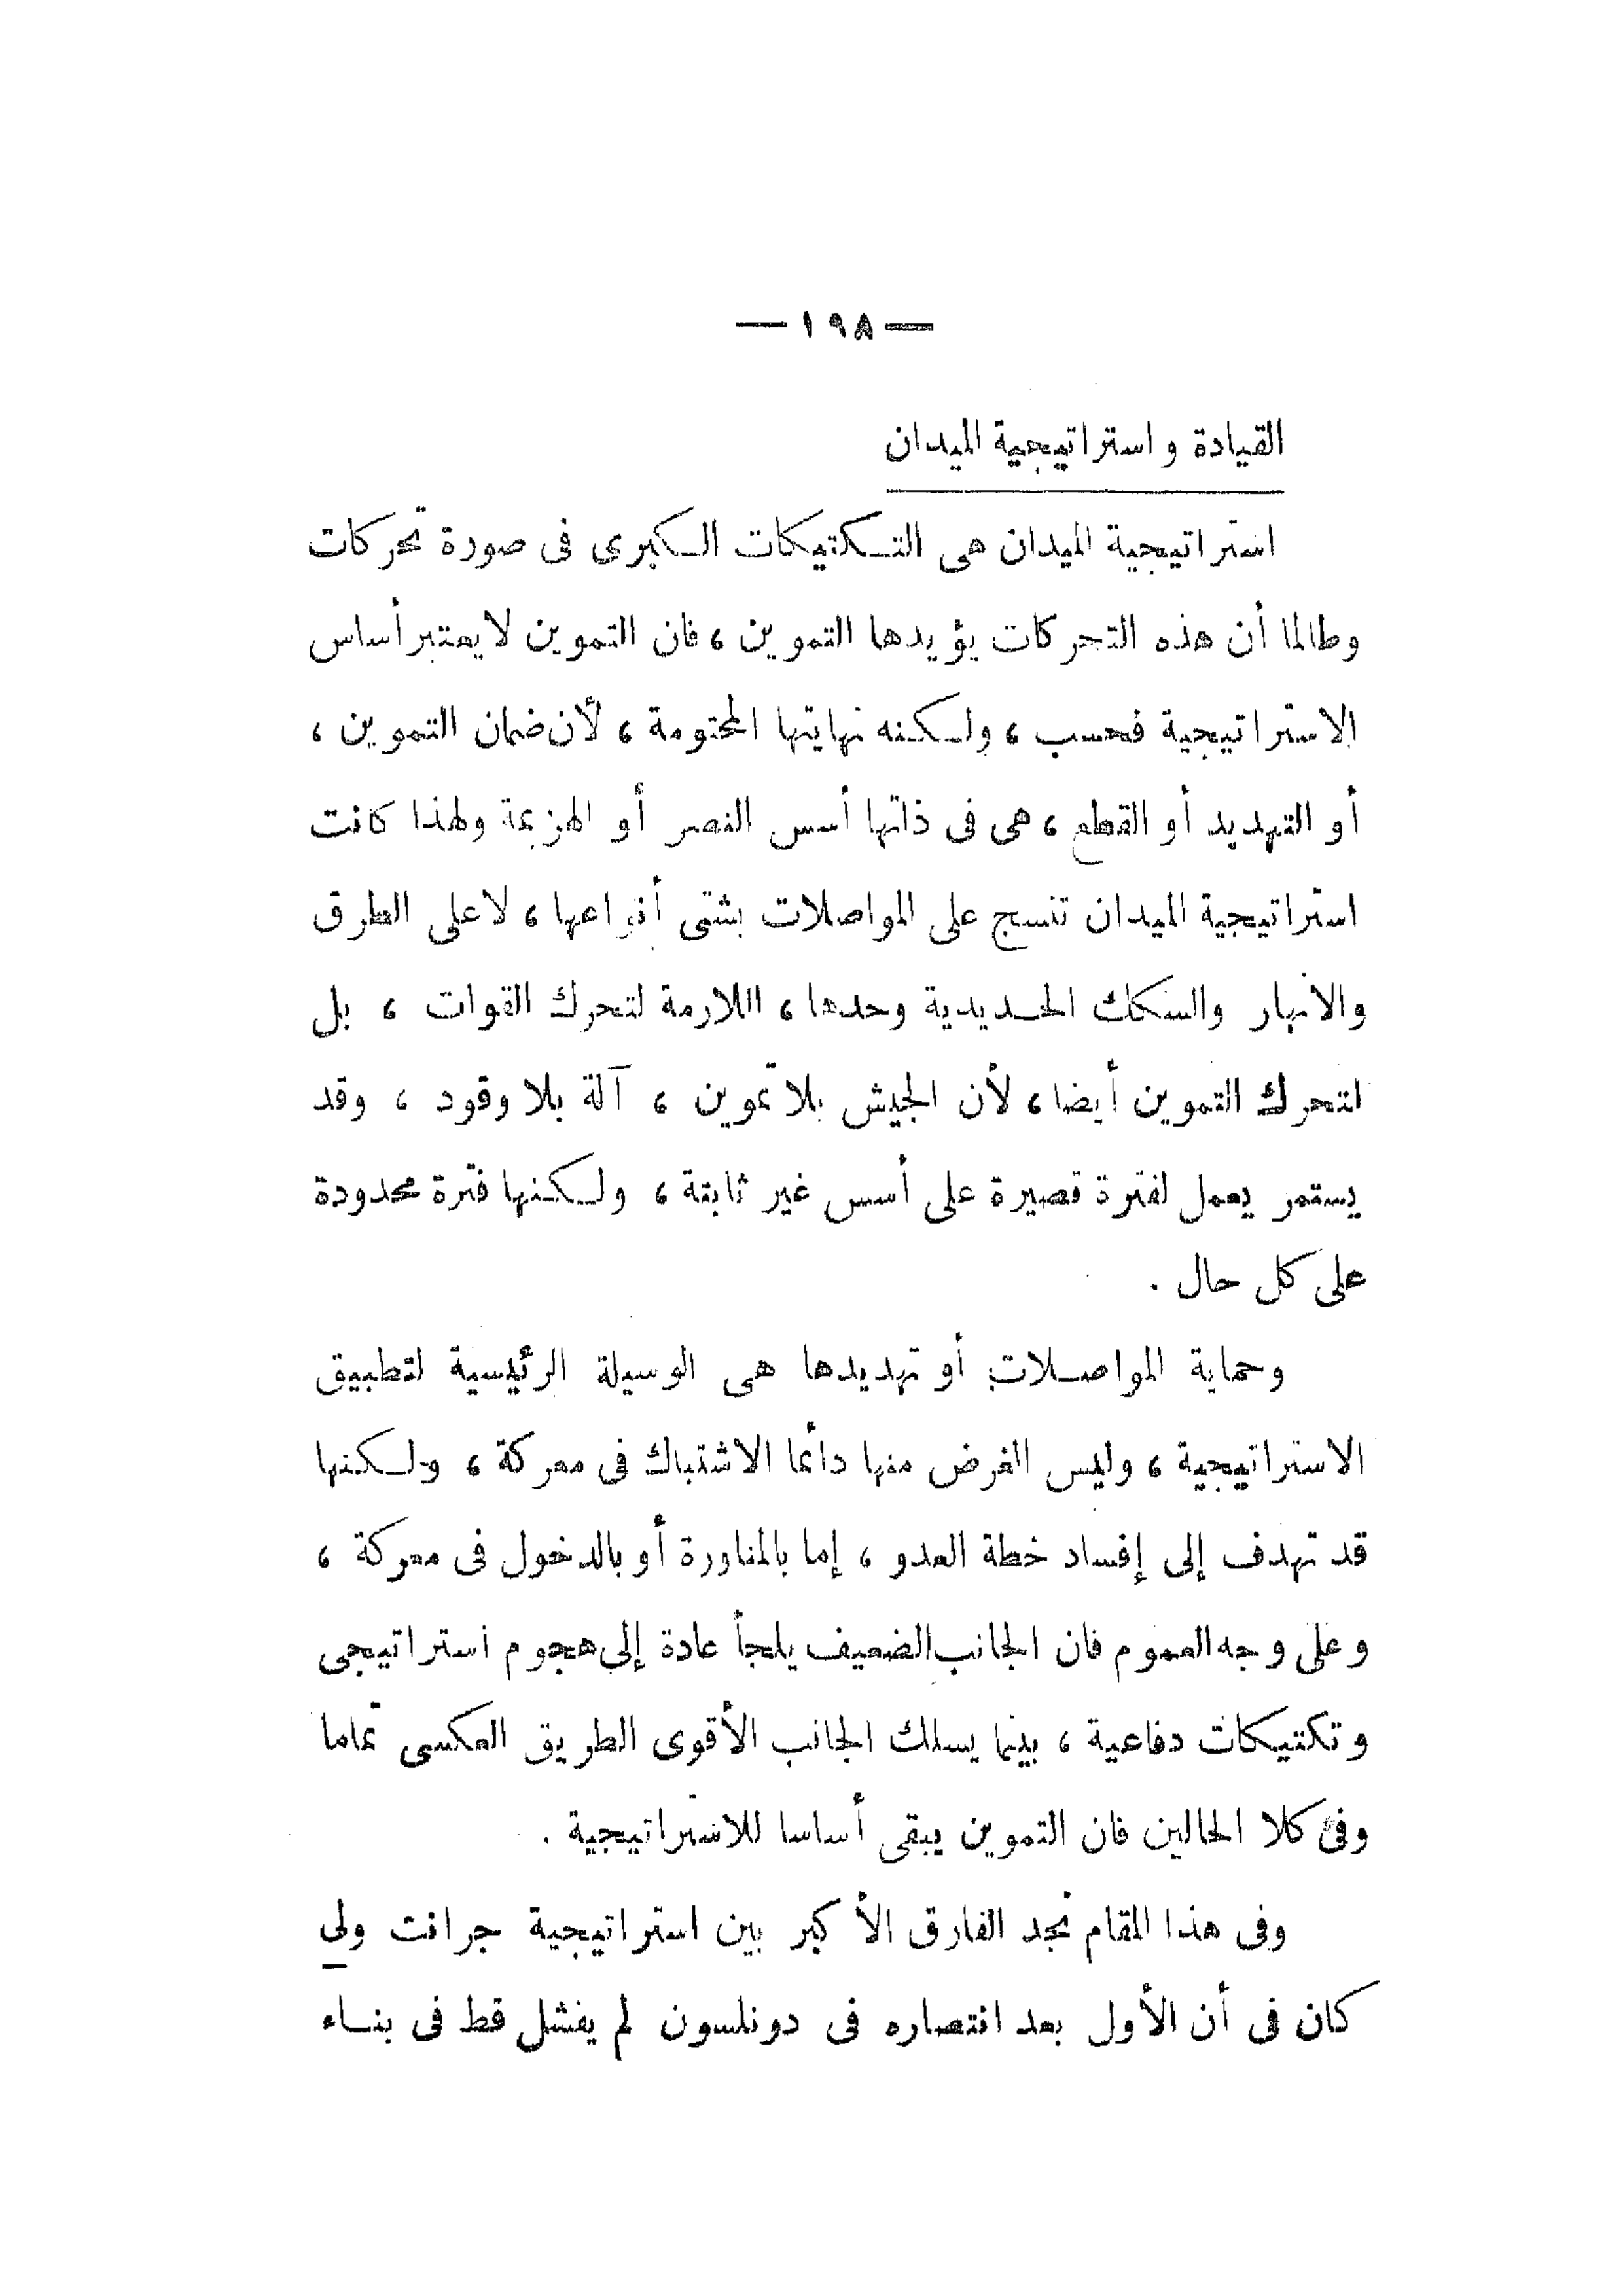 — ١٩٨ —
القيادة واستراتيجية الميدان
استراتيجية الميدان هى التكتيكات الكبرى فى صورة تحركات
وطالما أن هذه التحركات يؤيدها التموين ، فان التموين لا يعتبر أساس
الاستراتيجية فحسب ، ولكنه نهايتها المحتومة ، لأن ضمان التموين ،
أو التهديد أو القطع ، هى فى ذاتها أسس النصر أو الهزيمة ولهذا كانت
استراتيجية الميدان تنسج على المواصلات بشتى أنواعها ، لا على الطرق
والانهار والسكك الحديدية وحدها ، اللازمة لتحرك القوات ، بل
لتحرك التموين أيضا ، لأن الجيش بلا تموين ، آلة بلا وقود ، وقد
يستمر يعمل لفترة قصيرة على أسس غير ثابتة ، ولكنها فترة محدودة
على كل حال .
وحماية المواصلات أو تهديدها هى الوسيلة الرئيسية لتطبيق
الاستراتيجية ، وليس الغرض منها دائما الاشتباك فى معركة ، ولكنها
قد تهدف إلى إفساد خطة العدو ، إما بالمناورة أو بالدخول فى معركة ،
وعلى وجه العموم فان الجانب الضعيف يلجأ عادة إلى هجوم استراتيجى
وتكتيكات دفاعية ، بينما يسلك الجانب الأقوى الطريق العكسى تماما
وفى كلا الحالين فان التموين يبقى أساسا للاستراتيجية .
وفى هذا المقام نجد الفارق الأكبر بين استراتيجية جرانت ولى
كان فى أن الأول بعد انتصاره فى دونلسون لم يفشل قط فى بناء